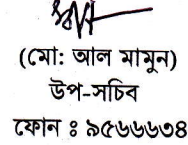 (মো: আল মামুন)
উপ-সচিব
ফোন ঃ ৯৫৬৬৬৩৪